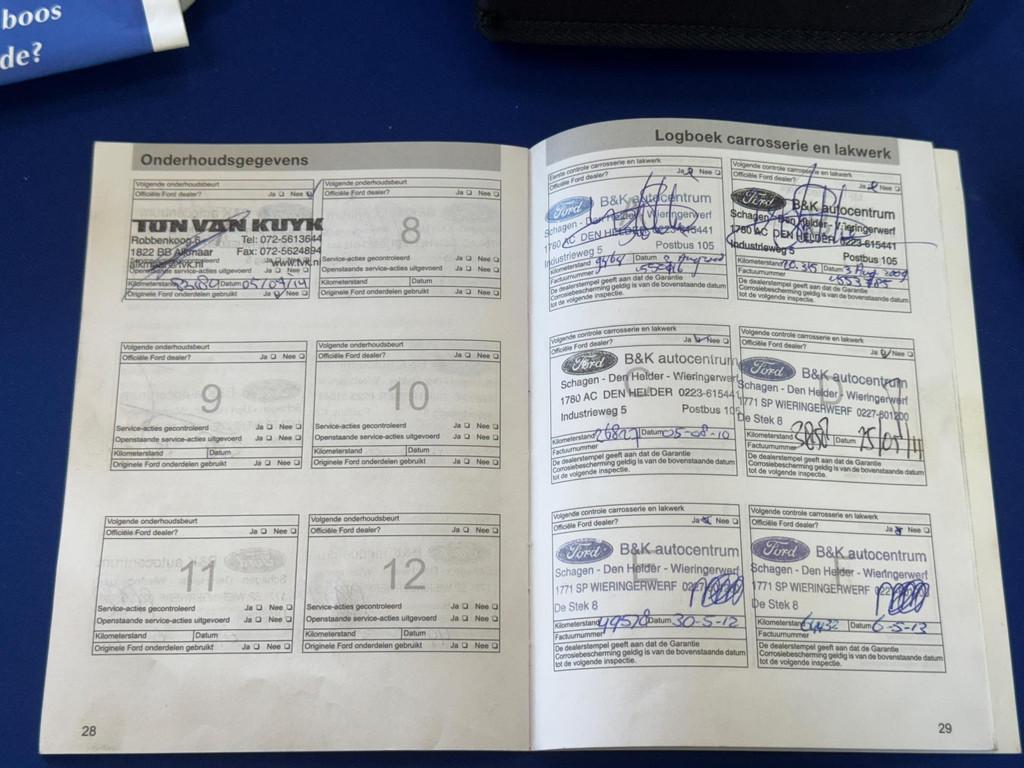 boos
de?
Onderhoudsgegevens
Volgende onderhoudsbeurt
Officiële Ford dealer? Ja Nee
TON VAN KUYK
Robbenkoog 6 Tel: 072-5613644
1822 BB Alkmaar Fax: 072-5624894
alkmaar@tvk.nl www.tvk.nl
Openstaande service-acties uitgevoerd Ja Nee
Kilometerstand Datum 05/09/14
Originele Ford onderdelen gebruikt Ja Nee
Volgende onderhoudsbeurt
Officiële Ford dealer? Ja Nee
8
Service-acties gecontroleerd Ja Nee
Openstaande service-acties uitgevoerd Ja Nee
Kilometerstand Datum
Originele Ford onderdelen gebruikt Ja Nee
Volgende onderhoudsbeurt
Officiële Ford dealer? Ja Nee
9
Service-acties gecontroleerd Ja Nee
Openstaande service-acties uitgevoerd Ja Nee
Kilometerstand Datum
Originele Ford onderdelen gebruikt Ja Nee
Volgende onderhoudsbeurt
Officiële Ford dealer? Ja Nee
10
Service-acties gecontroleerd Ja Nee
Openstaande service-acties uitgevoerd Ja Nee
Kilometerstand Datum
Originele Ford onderdelen gebruikt Ja Nee
Volgende onderhoudsbeurt
Officiële Ford dealer? Ja Nee
11
Service-acties gecontroleerd Ja Nee
Openstaande service-acties uitgevoerd Ja Nee
Kilometerstand Datum
Originele Ford onderdelen gebruikt Ja Nee
Volgende onderhoudsbeurt
Officiële Ford dealer? Ja Nee
12
Service-acties gecontroleerd Ja Nee
Openstaande service-acties uitgevoerd Ja Nee
Kilometerstand Datum
Originele Ford onderdelen gebruikt Ja Nee
28
Logboek carrosserie en lakwerk
Eerste controle carrosserie en lakwerk
Officiële Ford dealer? Ja Nee
Ford B&K autocentrum
Schagen - Den Helder - Wieringerwerf
1780 AC DEN HELDER 0223-615441
Industrieweg 5 Postbus 105
Kilometerstand Datum
Factuurnummer
De dealerstempel geeft aan dat de Garantie
Corrosiebescherming geldig is van de bovenstaande datum
tot de volgende inspectie.
Volgende controle carrosserie en lakwerk
Officiële Ford dealer? Ja Nee
Ford B&K autocentrum
Schagen - Den Helder - Wieringerwerf
1780 AC DEN HELDER 0223-615441
Industrieweg 5 Postbus 105
Kilometerstand Datum 3 Aug 2009
Factuurnummer
De dealerstempel geeft aan dat de Garantie
Corrosiebescherming geldig is van de bovenstaande datum
tot de volgende inspectie.
Volgende controle carrosserie en lakwerk
Officiële Ford dealer? Ja Nee
Ford B&K autocentrum
C
Schagen - Den Helder - Wieringerwerf
1780 AC DEN HELDER 0223-615441
Industrieweg 5 Postbus 105
Kilometerstand 26827 Datum 05-08-10
Factuurnummer
De dealerstempel geeft aan dat de Garantie
Corrosiebescherming geldig is van de bovenstaande datum
tot de volgende inspectie.
Volgende controle carrosserie en lakwerk
Officiële Ford dealer? Ja Nee
Ford B&K autocentrum
Schagen - Den Helder - Wieringerwerf
1771 SP WIERINGERWERF 0227-601200
De Stek 8
Kilometerstand Datum 25/05/11
Factuurnummer
De dealerstempel geeft aan dat de Garantie
Corrosiebescherming geldig is van de bovenstaande datum
tot de volgende inspectie.
Volgende controle carrosserie en lakwerk
Officiële Ford dealer? Ja Nee
Ford B&K autocentrum
E
Schagen - Den Helder - Wieringerwerf
1771 SP WIERINGERWERF
De Stek 8
Kilometerstand 49578 Datum 30-5-12
Factuurnummer
De dealerstempel geeft aan dat de Garantie
Corrosiebescherming geldig is van de bovenstaande datum
tot de volgende inspectie.
Volgende controle carrosserie en lakwerk
Officiële Ford dealer? Ja Nee
Ford B&K autocentrum
Schagen - Den Helder - Wieringerwerf
1771 SP WIERINGERWERF
De Stek 8
Kilometerstand 64432 Datum 6-5-13
Factuurnummer
De dealerstempel geeft aan dat de Garantie
Corrosiebescherming geldig is van de bovenstaande datum
tot de volgende inspectie.
29